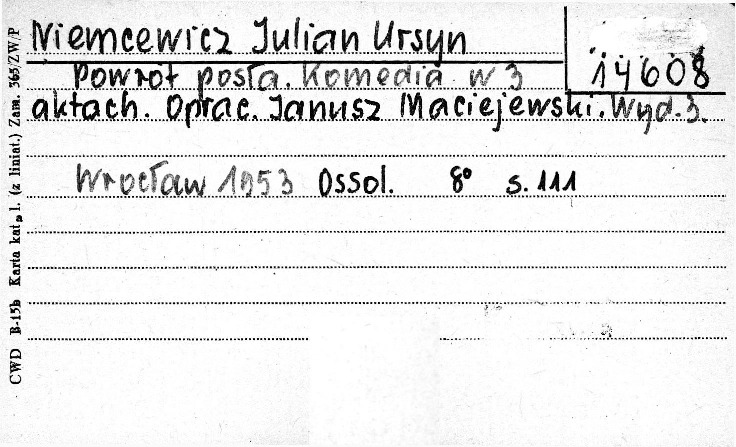 Niemcewicz Julian Ursyn
14608
Powrót posła. Komedia w 3
aktach. Oprac. Janusz Maciejewski. Wyd. 3.
Wrocław 1953 Ossol. 8° s. 111
CWD B-15b Karta kat. l. (z liniat.) Zam. 365/ZW/P